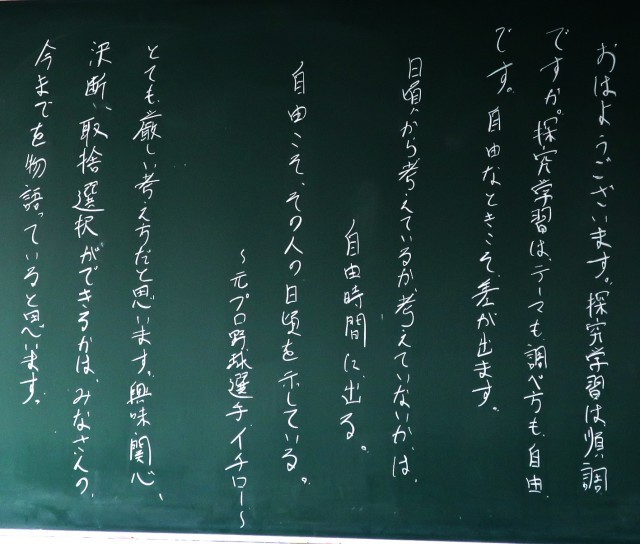 おはようございます。探究学習は順調
ですか。探究学習は、テーマも調べ方も自由
です。自由なときこそ差が出ます。
日頃から考えているか考えていないかは、
自由時間に出る。
自由こそ、その人の日頃を示している。
～元プロ野球選手イチロー～
とても厳しい考えだと思います。興味、関心、
決断、取捨選択ができるかは、みなさんの、
今までを物語っていると思います。